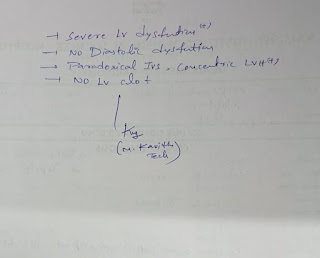 → Severe LV dysfunction (+)
→ No Diastolic dysfunction
→ Paradoxical IVS, Concentric LVH (+)
→ No LV clot
(M. Kavitha
Tech)